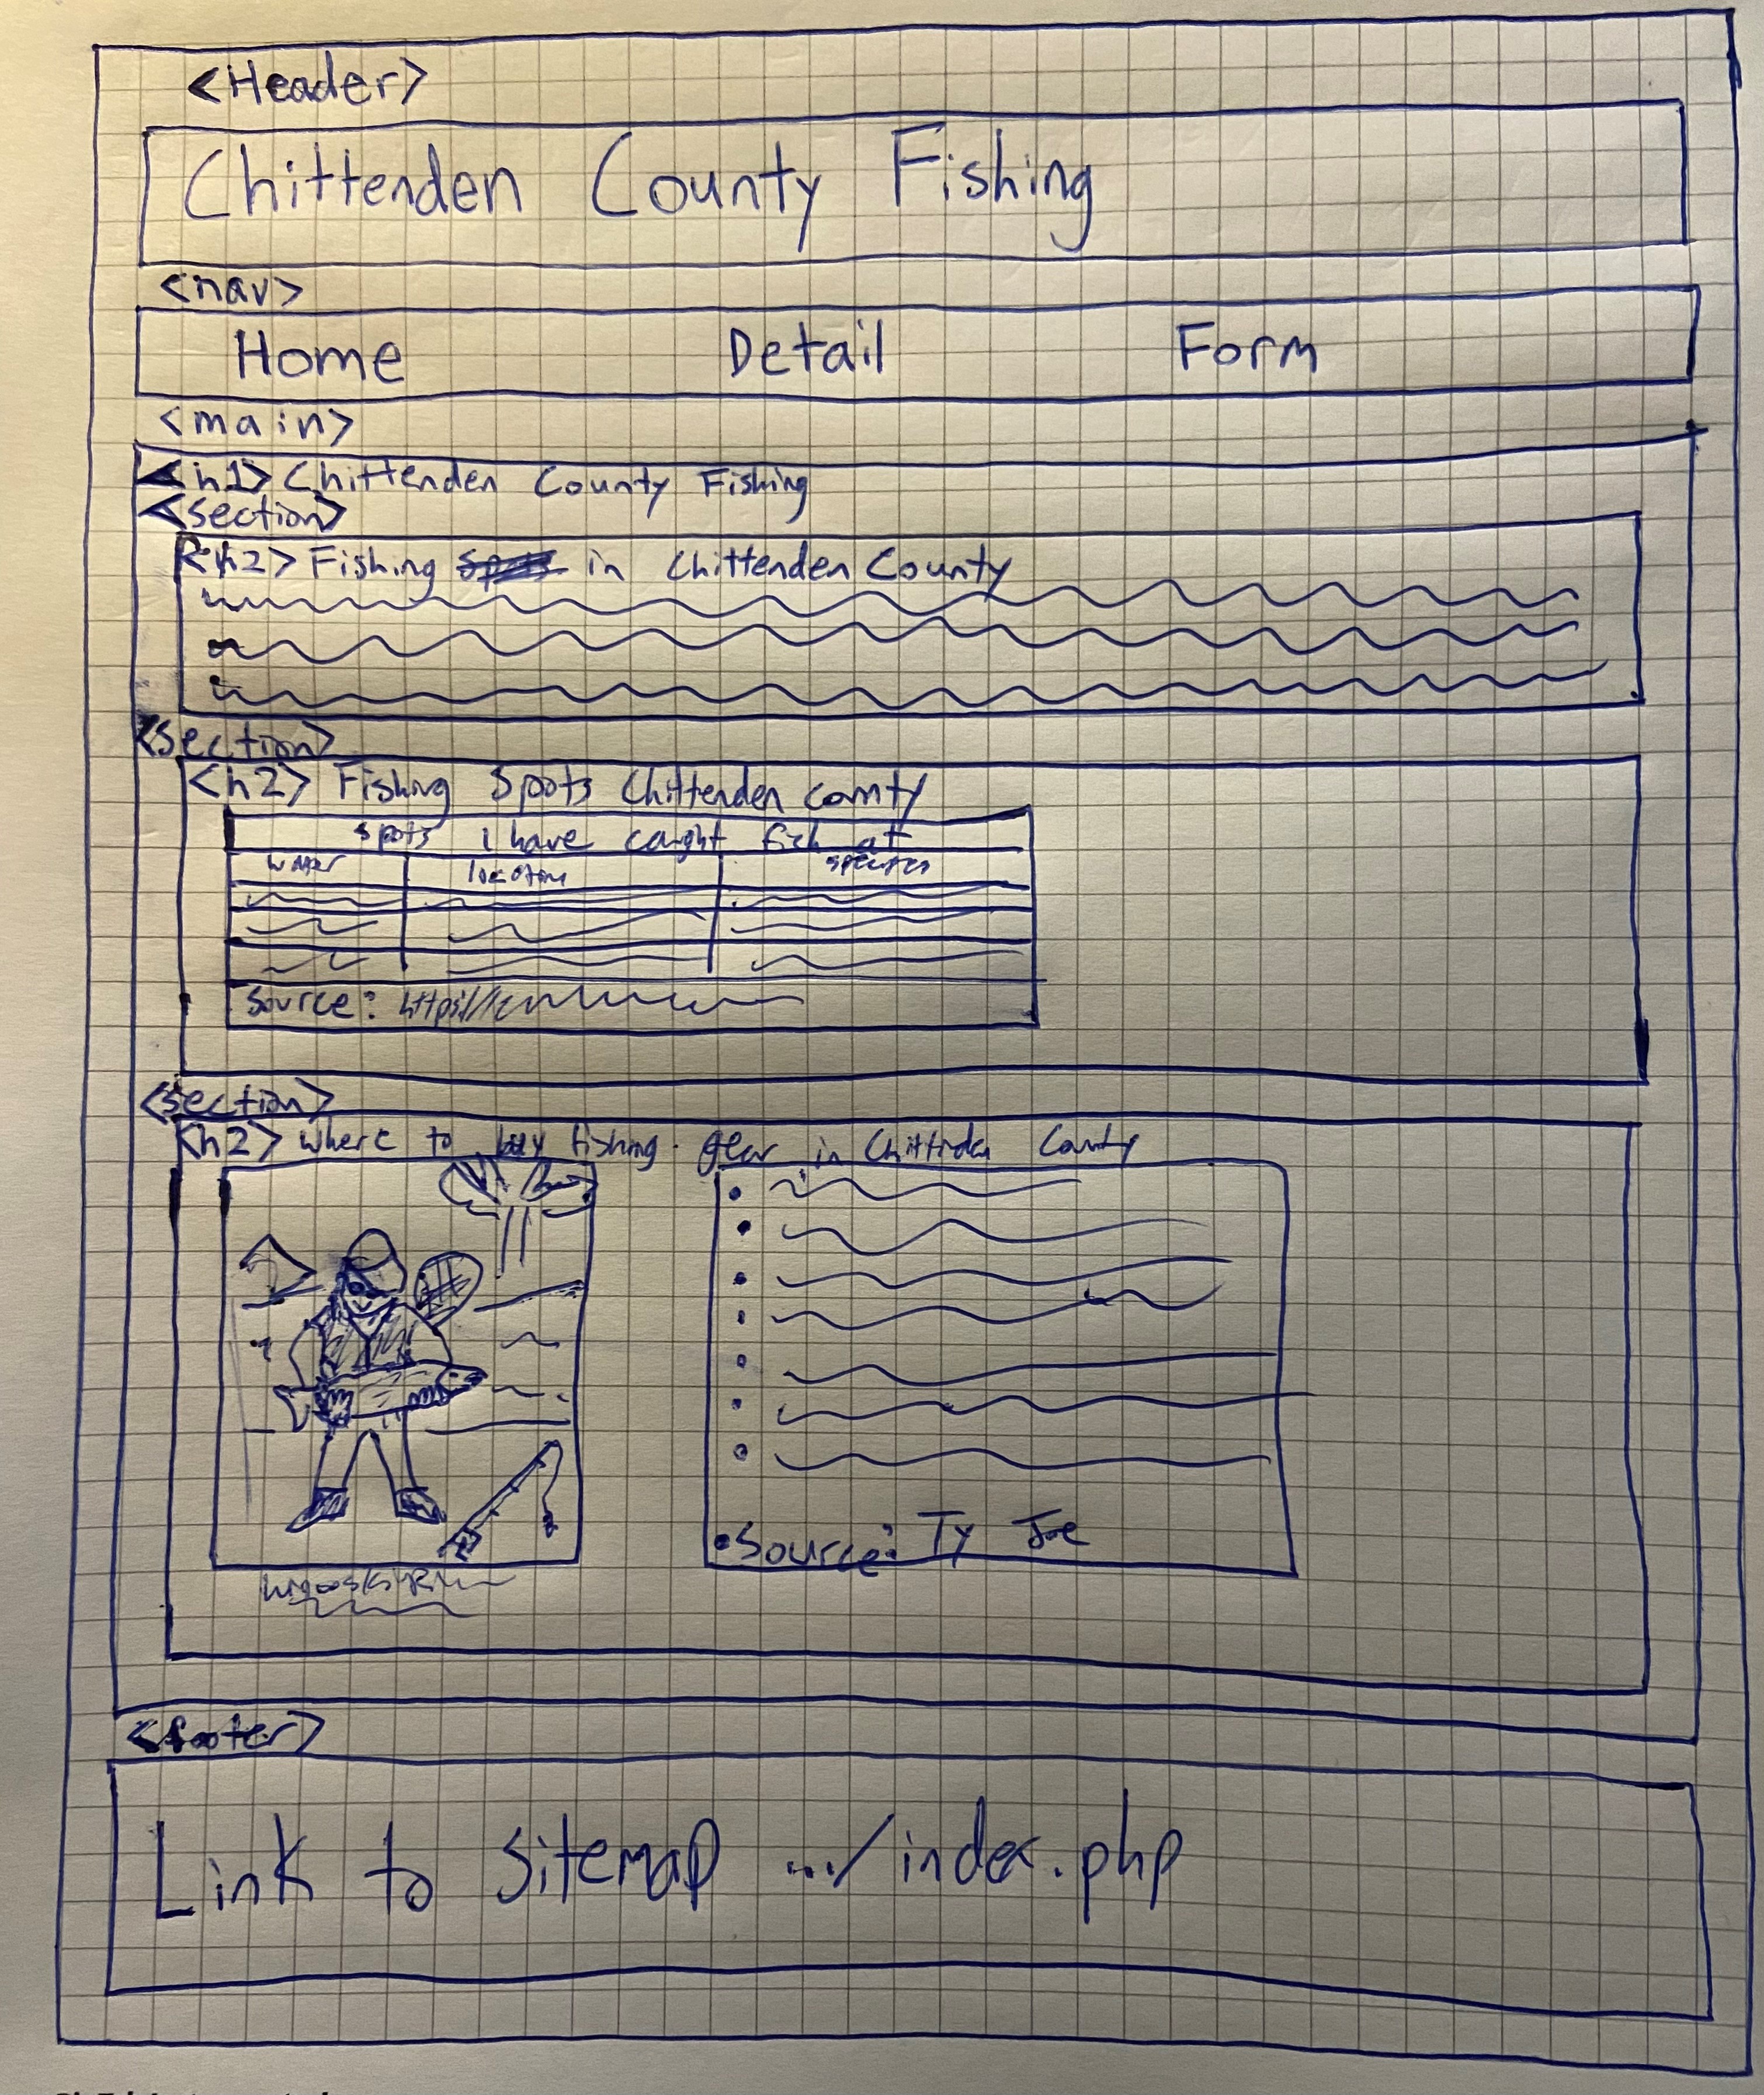 <Header>
Chittenden County Fishing
<nav>
Home Detail Form
<main>
<h1> Chittenden County Fishing
<section>
<h2> Fishing in Chittenden County
<section>
<h2> Fishing Spots Chittenden county
spots i have caught fish at
water location species
Source: https://
<section>
<h2> where to buy fishing gear in Chittenden County
Source: Ty Joe
<footer>
Link to sitemap .../index.php